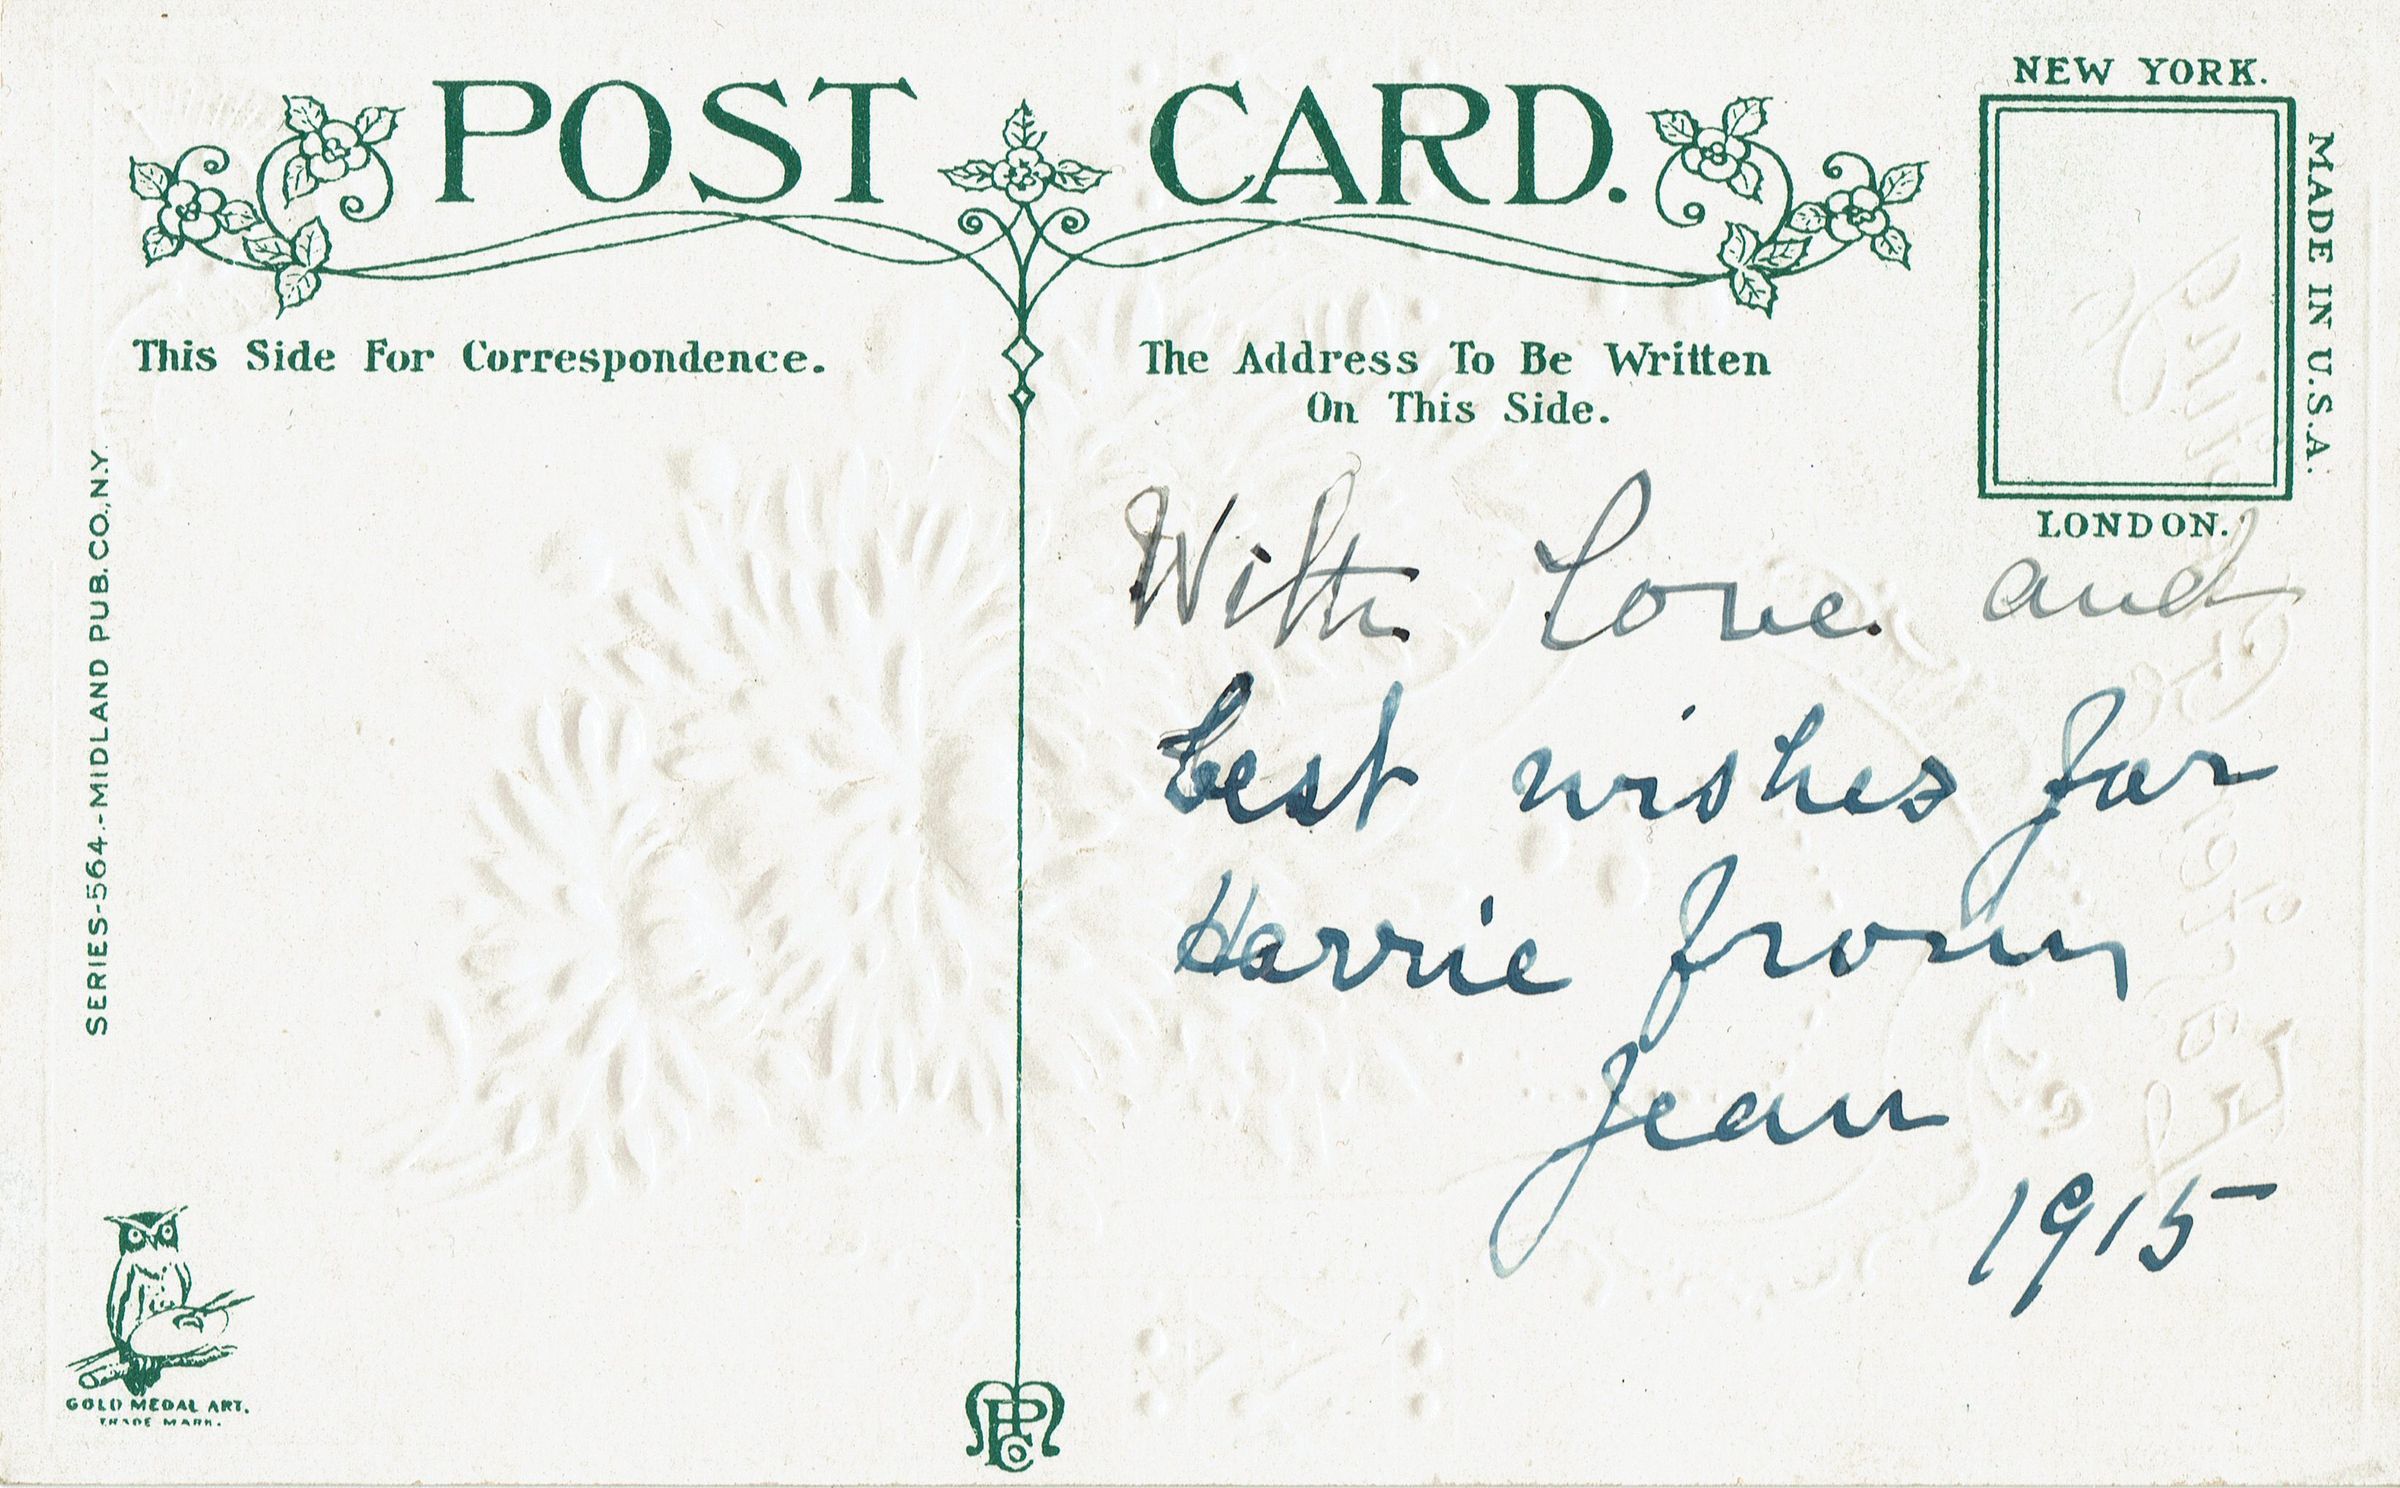 POST CARD.
NEW YORK.
MADE IN U.S.A.
LONDON.
This Side For Correspondence.
The Address To Be Written
On This Side.
SERIES-564.-MIDLAND PUB. CO., N.Y.
With Love and
best wishes for
Harrie from
Jean
1915
GOLD MEDAL ART.
TRADE MARK.
MPCo